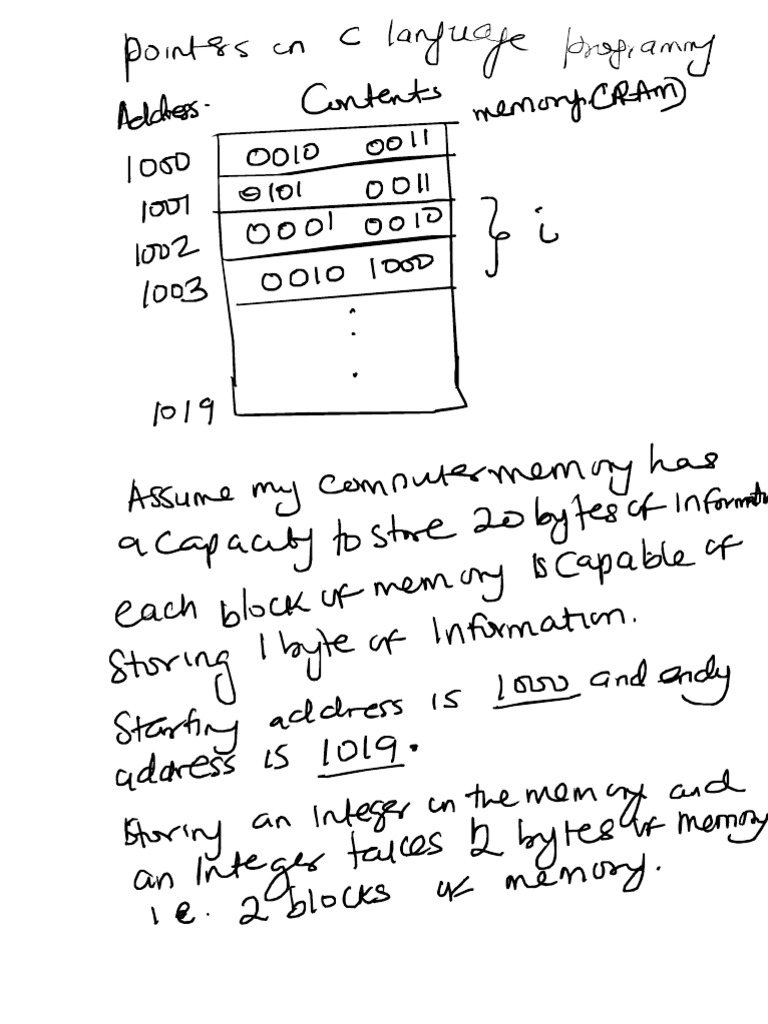 pointers in C language programmy
Address. Contents memory (RAM)
1000 0010 0011
1001 0101 0011
1002 0001 0010 } i
1003 0010 1000
1019
Assume my computer memory has
a capacity to store 20 bytes of Information
each block of memory is capable of
Storing 1 byte of Information.
Starting address is 1000 and endy
address is 1019.
Storing an integer in the memory and
an Integer takes 2 bytes of memory
i.e. 2 blocks of memory.